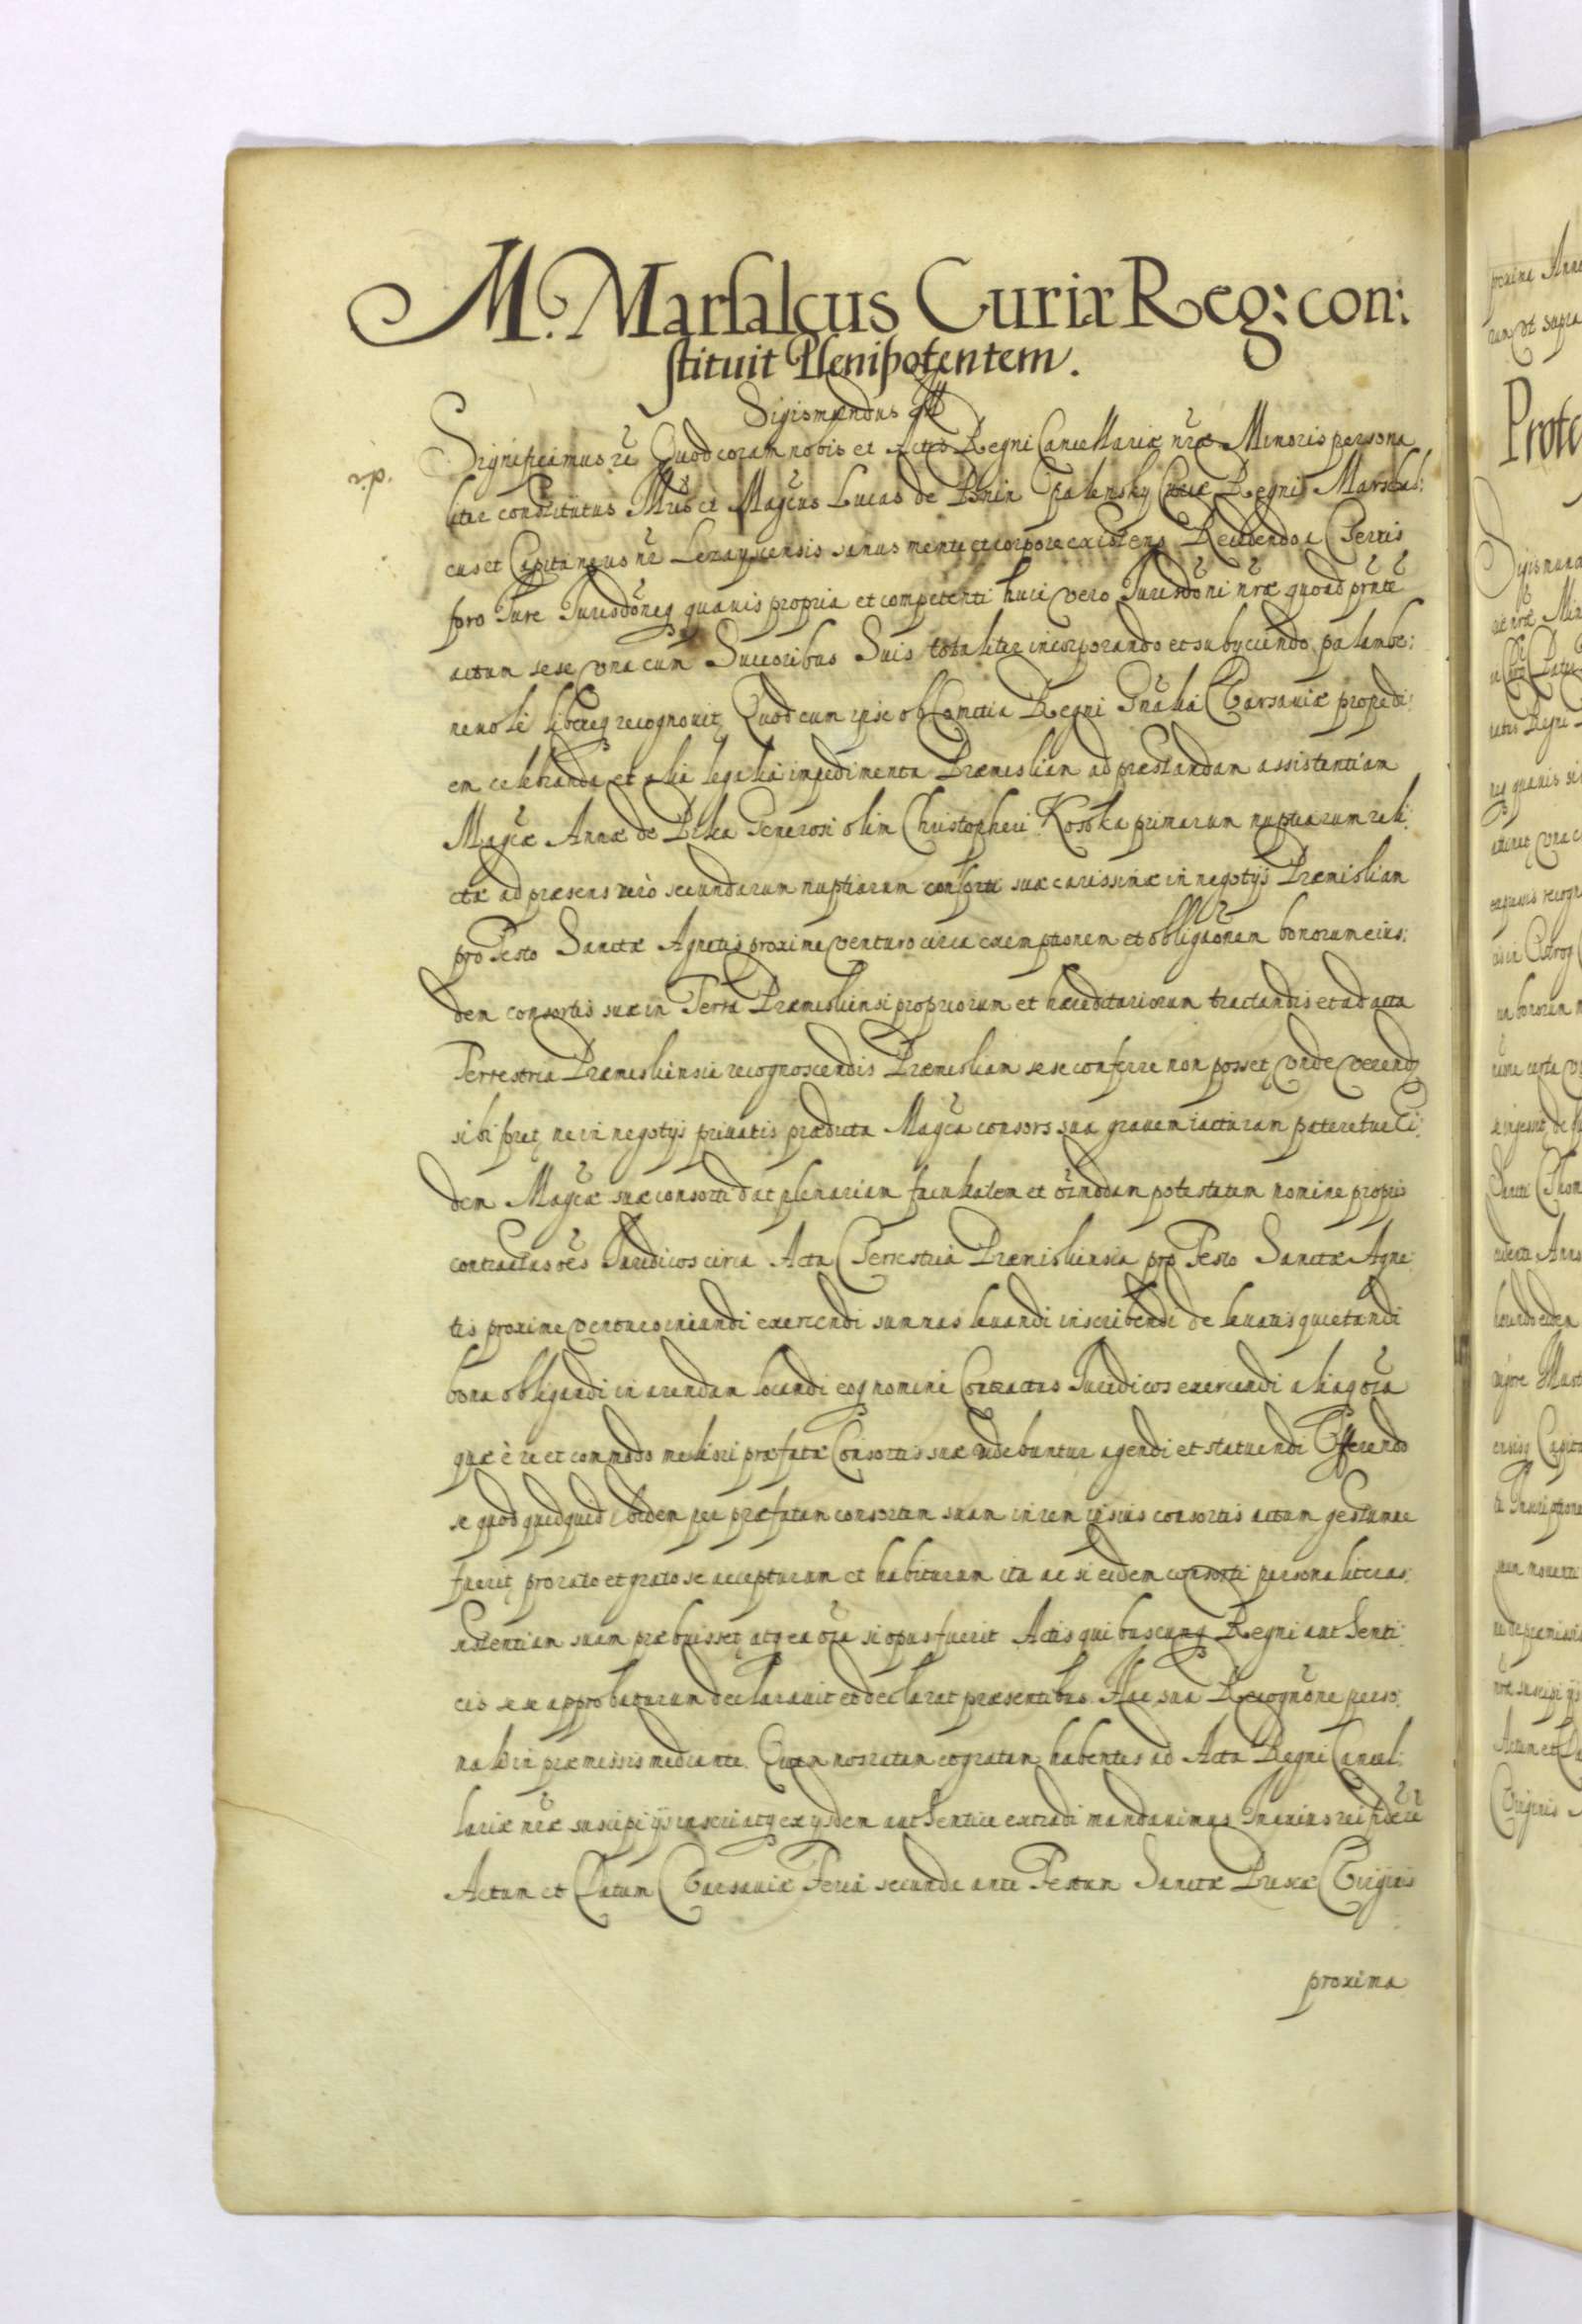 M. Marsalcus Curiæ Reg: con:
stituit Plenipotentem.
Sigismundus
Significamus Quod coram nobis et Actis Regni Cancellariæ nr̃æ Minoris persona
liter constitutus et Magcus Lucas de Bnin Opalensky Curiæ Regni Marschal:
cus et Capitaneus nr̃ Lezayscensis sanus mente et corpore existens Recedendo a Terris
foro Jure Jurisdōneq quauis propria et competenti huic vero Jurisdōni nr̃æ quoad prn̄tẽ
actum sese vna cum Succoribus Suis totaliter incorporando et subyciendo palam be:
neuole libereq recognouit Quod cum ipse ob Comitia Regni Gnãlia Varsauiæ propedi:
em celebranda et alia legalia impedimenta Præmisliam ad præstandam assistentiam
Magcæ Annæ de Pilca Generosi olim Christopheri Kostka primarum nuptiarum reli:
ctæ ad præsens verò secundarum nuptiarum consorti suæ carissimæ in negotijs Præmisliam
pro Festo Sanctæ Agnetis proxime venturo circa exemptionem et obligãonem bonorum eius:
dem consortis suæ in Terra Præmisliensi propriorum et hæreditariorum tractandis et ad acta
Terrestria Præmisliensia recognoscendis Præmisliam sese conferre non posset vnde verendū
sibi foret ne in negotijs priuatis prædicta Magca consors sua grauem iacturam pateretur Ei:
dem Magcæ suæ consorti dat plenariam facultatem et oīmodam potestatem nomine proprio
contractus oẽs Juridicos circa Acta Terrestria Præmisliensia pro Festo Sanctæ Agne:
tis proxime venturo iniandi exercendi summas leuandi inscribendi de leuatis quietandi
bona obligandi in arendam locandi eoq nomine Contractus Juridicos exercendi aliaq oīa
quæ è re et commodo meliori præfatæ Consortis suæ videbuntur agendi et statuendi Offerendo
se quod quidquid ibidem per præfatam consortem suam in rem ipsius consortis actum gestumue
fuerit pro rato et grato se accepturum et habiturum ita ac si eidem consorti personaliter as:
sistentiam suam præbuisset atq ea oīa si opus fuerit Actis quibuscunq Regni authenti:
cis sese approbaturum declarauit et declarat præsentibus Hac sua Recognõne perso:
nali in præmissis mediante. Quam nos ratam et gratam habentes ad Acta Regni Cancel:
lariæ nr̃æ suscipi ijs inseri atq ex ijsdem authentice extradi mandauimus In cuius rei fidem
Actum et Datum Varsauiæ Feria secunda ante Festum Sanctæ Priscæ Virginis
proxima